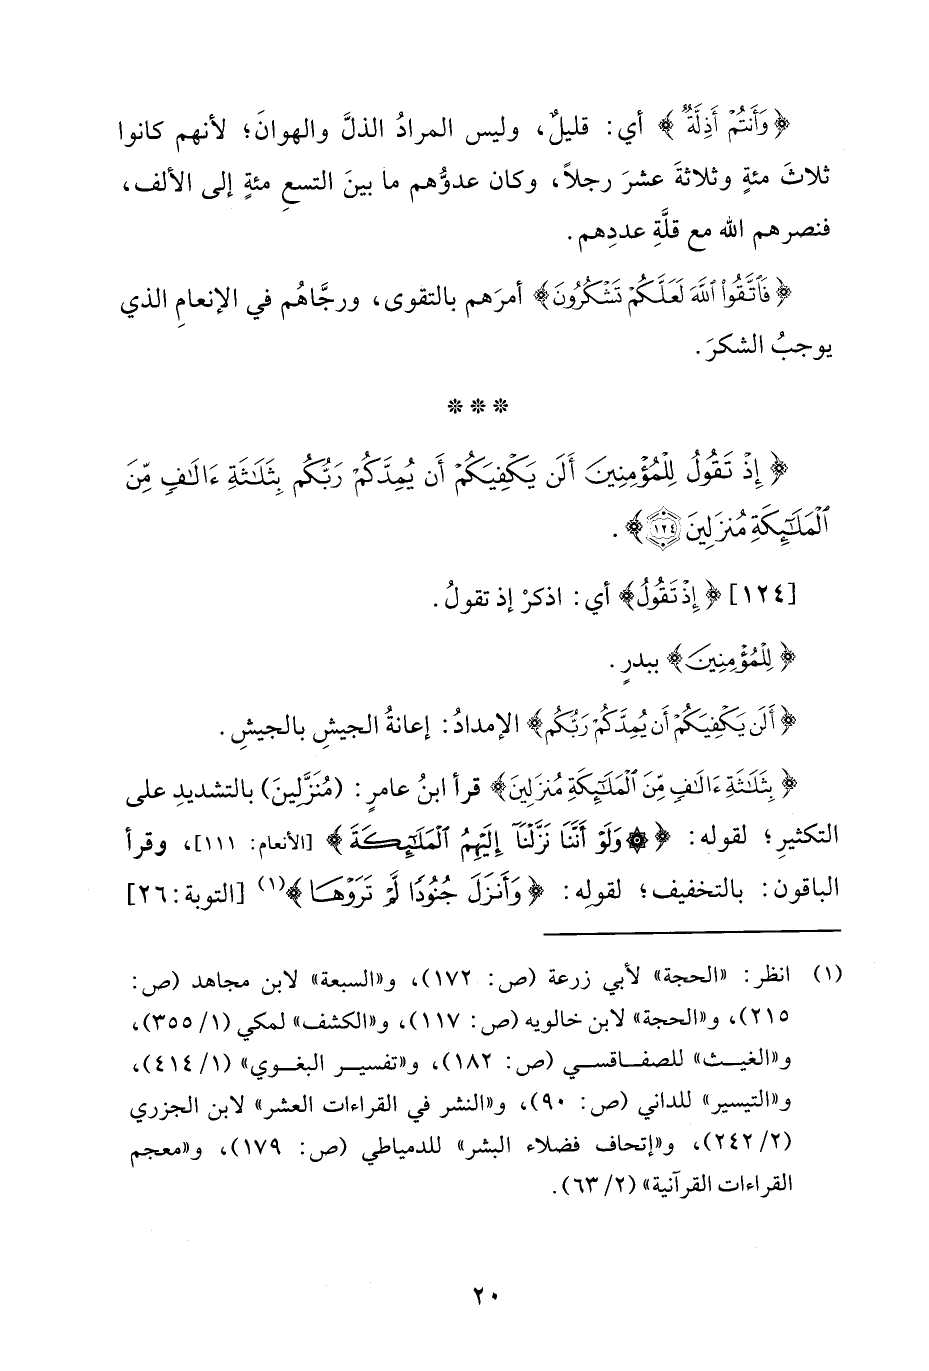 ﴿وَأَنتُمْ أَذِلَّةٌ﴾ أي: قليلٌ، وليس المرادُ الذلَّ والهوانَ؛ لأنهم كانوا
ثلاثَ مئةٍ وثلاثةَ عشرَ رجلاً، وكان عدوُّهم ما بينَ التسعِ مئةٍ إلى الألف،
فنصرهم الله مع قلَّةِ عددِهم.
﴿فَاتَّقُوا اللَّهَ لَعَلَّكُمْ تَشْكُرُونَ﴾ أمرَهم بالتقوى، ورجَّاهُم في الإنعامِ الذي
يوجبُ الشكرَ.
***
﴿إِذْ تَقُولُ لِلْمُؤْمِنِينَ أَلَن يَكْفِيَكُمْ أَن يُمِدَّكُمْ رَبُّكُم بِثَلَاثَةِ ءَالَافٍ مِّنَ
الْمَلَائِكَةِ مُنزَلِينَ ١٢٤﴾.
[١٢٤] ﴿إِذْ تَقُولُ﴾ أي: اذكرْ إذ تقولُ.
﴿لِلْمُؤْمِنِينَ﴾ ببدرٍ.
﴿أَلَن يَكْفِيَكُمْ أَن يُمِدَّكُمْ رَبُّكُم﴾ الإمدادُ: إعانةُ الجيشِ بالجيشِ.
﴿بِثَلَاثَةِ ءَالَافٍ مِّنَ الْمَلَائِكَةِ مُنزَلِينَ﴾ قرأ ابنُ عامرٍ: (مُنَزَّلِينَ) بالتشديدِ على
التكثيرِ؛ لقوله: ﴿۞ وَلَوْ أَنَّنَا نَزَّلْنَا إِلَيْهِمُ الْمَلَائِكَةَ﴾ [الأنعام: ١١١]، وقرأ
الباقون: بالتخفيف؛ لقولِه: ﴿وَأَنزَلَ جُنُودًا لَّمْ تَرَوْهَا﴾(١) [التوبة: ٢٦]
(١) انظر: «الحجة» لأبي زرعة (ص: ١٧٢)، و«السبعة» لابن مجاهد (ص:
٢١٥)، و«الحجة» لابن خالويه (ص: ١١٧)، و«الكشف» لمكي (١/ ٣٥٥)،
و«الغيث» للصفاقسي (ص: ١٨٢)، و«تفسير البغوي» (١/ ٤١٤)،
و«التيسير» للداني (ص: ٩٠)، و«النشر في القراءات العشر» لابن الجزري
(٢/ ٢٤٢)، و«إتحاف فضلاء البشر» للدمياطي (ص: ١٧٩)، و«معجم
القراءات القرآنية» (٢/ ٦٣).
٢٠